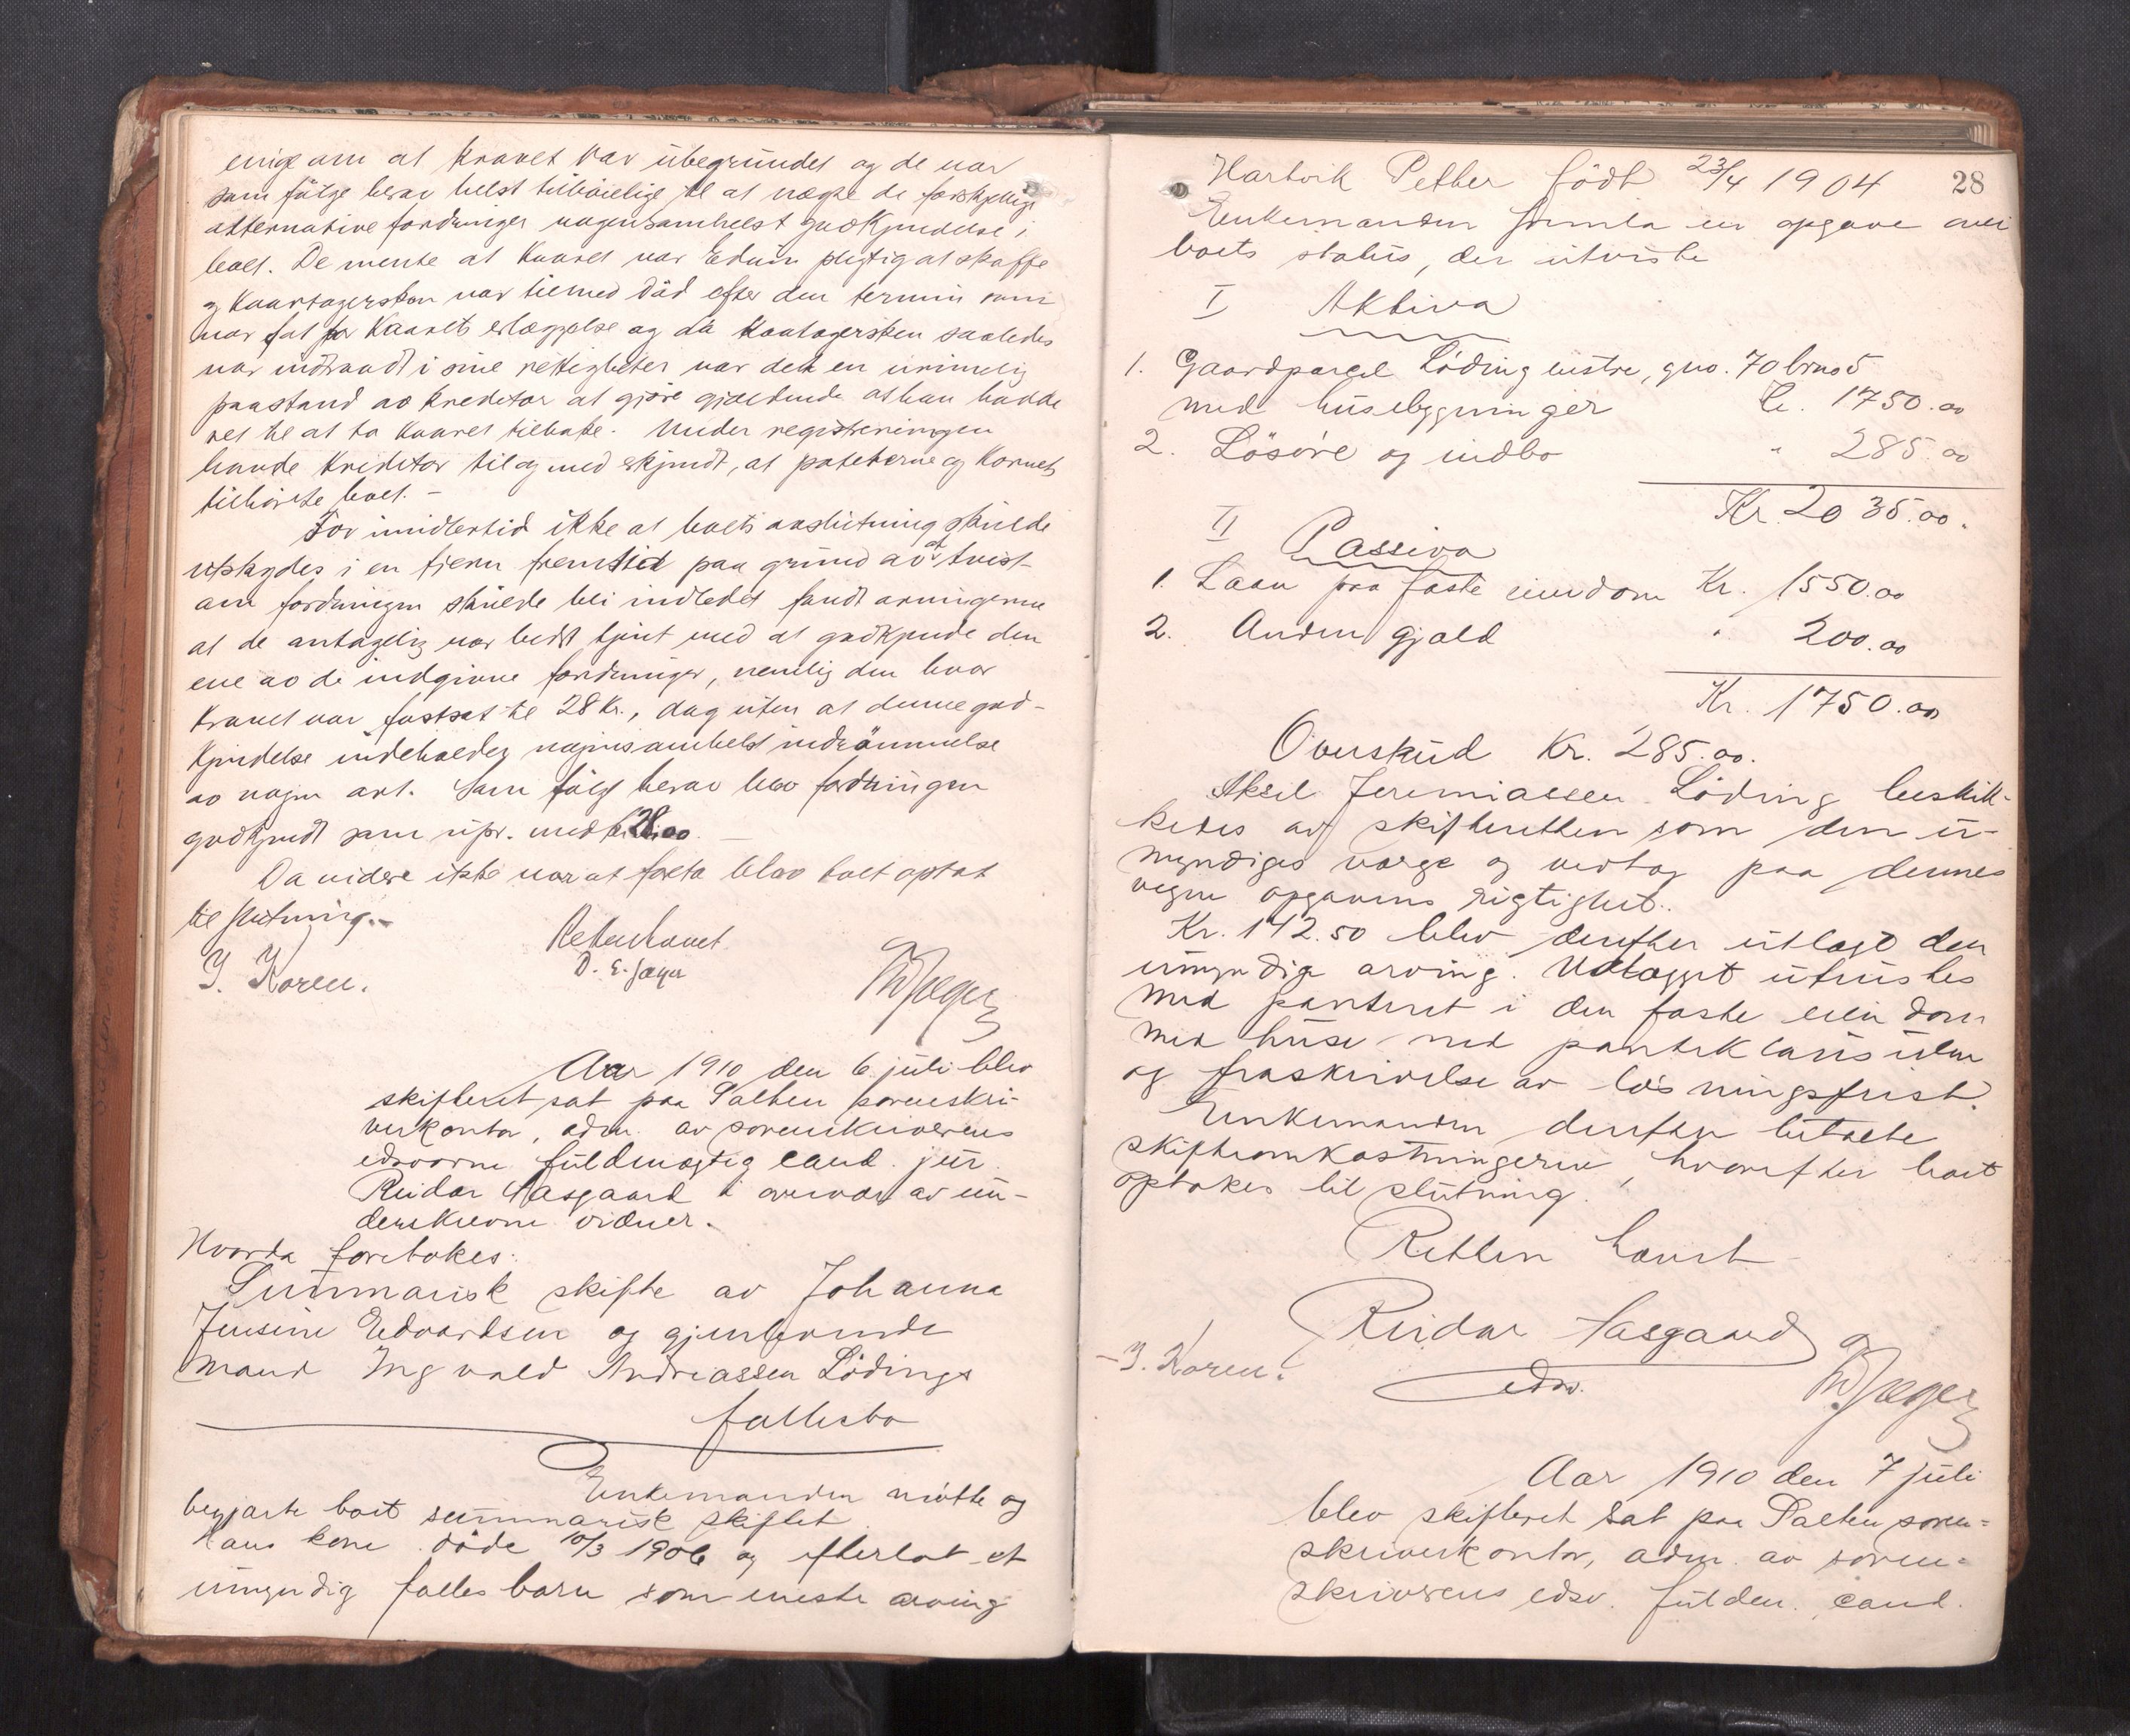 enige om at kravet var ubegrundet og de var
som følge herav helst tilbøielige til at nægte de forskjellige
alternative fordringer nogensomhelst godkjendelse i
boet. De mente at kaaret var Edvin pligtig at skaffe
og kaartagersken var tilmed død efter den termin som
var sat for kaarets erlæggelse og da kaartagersken saaledes
var indtraadt i sine rettigheter var det en urimelig
paastand av kreditor at gjøre gjældende at han hadde
ret til at ta kaaret tilbake. Under registreringen
havde kreditor til og med erkjendt, at poteterne og kornet
tilhørte boet. –
For imidlertid ikke at boets avslutning skulde
utskydes i en fjern fremtid paa grund av at tvist
om fordringen skulde bli indledet fandt arvingerne
at de antagelig var bedst tjent med at godkjende den
ene av de indgivne fordringer, nemlig den hvor
kravet var fastsat til 28 kr., dog uten at denne god-
kjendelse indeholder nogensomhelst indrømmelse
av nogen art. Som følge herav blev fordringen
godkjendt som upr. med kr. 28.00 –
Da videre ikke var at foreta blev boet optat
til slutning. –
Retten hævet
J. Koren. D. E. Jæger
Aar 1910 den 6 juli blev
skifteret sat paa Salten sorenskri-
verkontor, adm. av sorenskriverens
edsvorne fuldmægtig cand. jur.
Reidar Aasgaard i overvær av un-
derskrevne vidner.
Hvorda foretokes:
Summarisk skifte av Johanna
Jensine Edvardsen og gjenlevende
mand Ingvald Andreassen Lødings
fællesbo
Enkemanden møtte og
begjærte boet summarisk skiftet.
Hans kone døde 10/3 1906 og efterlot et
umyndig fælles barn som eneste arving
28
Hartvik Petter født 23/4 1904
Enkemanden fremla en opgave over
boets status, der utviste
I Aktiva
1. Gaardparcel Løding vestre, gno. 70 brno 5
med husebygninger Kr. 1750.00
2. Løsøre og indbo " 285.00
Kr. 2035.00.
II Passiva
1. Laan paa faste eiendom Kr. 1550.00
2. Anden gjæld " 200.00
Kr. 1750.00
Overskud Kr. 285.00.
Aksel Jeremiassen Løding beskik-
kedes av skifteretten som den u-
myndiges værge og vedtog paa dennes
vegne opgavens rigtighet.
Kr. 142.50 blev derefter utlagt den
umyndige arving. Utlægget utvistes
med panteret i den faste eiendom
med huse med panteklausulen
og fraskrivelse av løsningsfrist.
Enkemanden derefter betalte
skifteomkostningerne, hvorefter boet
optokes til slutning.
Retten hævet
Reidar Aasgaard
edsv.
J. Koren.
Aar 1910 den 7 juli
blev skifteret sat paa Salten soren-
skriverkontor, adm. av soren-
skriverens edsv. fuldm. cand.